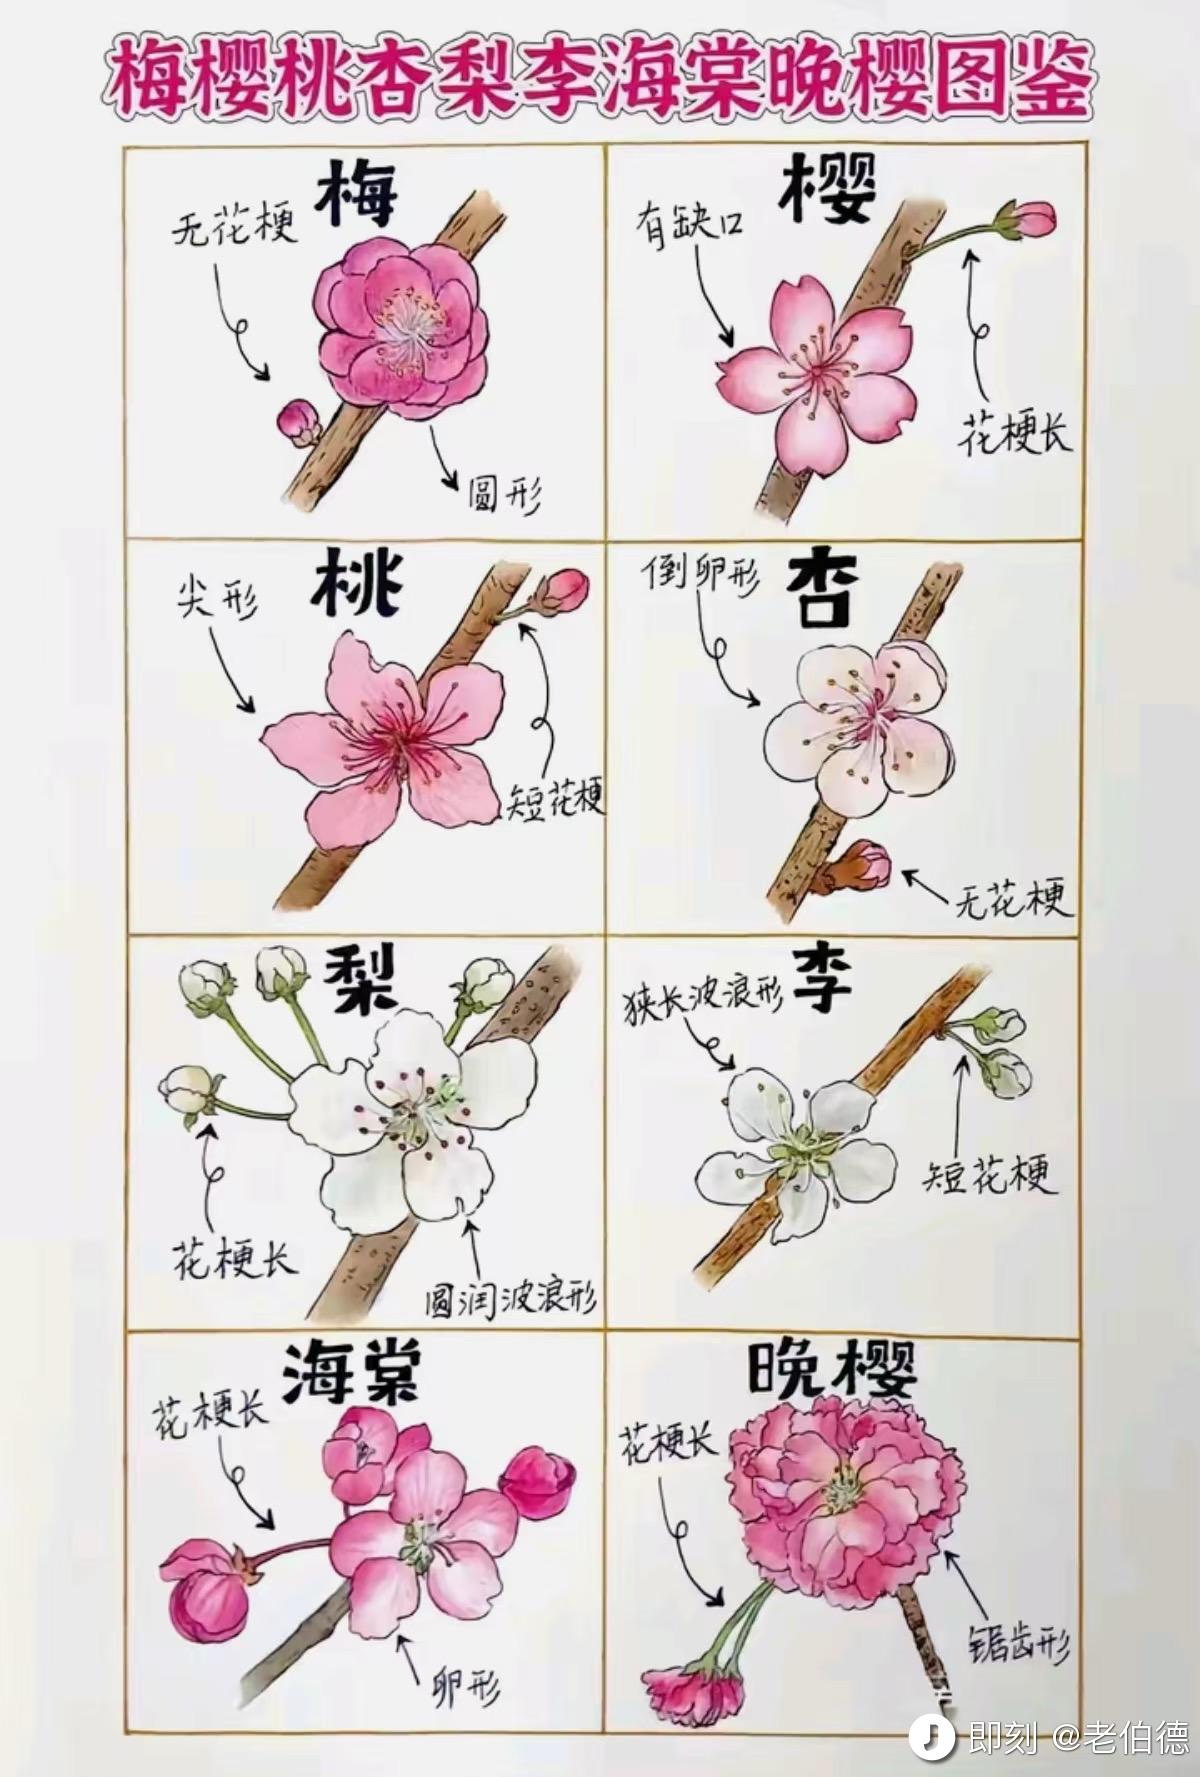 梅樱桃杏梨李海棠晚樱图鉴
梅
无花梗
圆形
樱
有缺口
花梗长
桃
尖形
短花梗
杏
倒卵形
无花梗
梨
花梗长
圆润波浪形
李
狭长波浪形
短花梗
海棠
花梗长
卵形
晚樱
花梗长
锯齿形
即刻 @老伯德